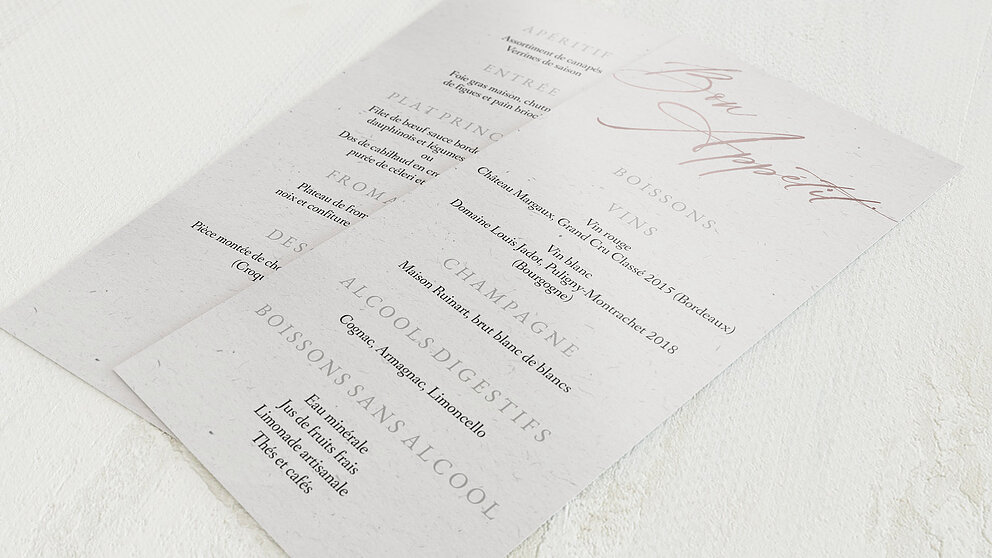 APÉRITIF
Assortiment de canapés
Verrines de saison
ENTRÉE
Foie gras maison, chutn
de figues et pain brioc
PLAT PRINC
Filet de bœuf sauce bord
dauphinois et légumes
ou
Dos de cabillaud en cr
purée de céleri et
FROMA
Plateau de from
noix et confiture
DES
Pièce montée de ch
(Croq
Bon
Appétit
BOISSONS
VINS
Vin rouge
Château Margaux, Grand Cru Classé 2015 (Bordeaux)
Vin blanc
Domaine Louis Jadot, Puligny-Montrachet 2018
(Bourgogne)
CHAMPAGNE
Maison Ruinart, brut blanc de blancs
ALCOOLS DIGESTIFS
Cognac, Armagnac, Limoncello
BOISSONS SANS ALCOOL
Eau minérale
Jus de fruits frais
Limonade artisanale
Thés et cafés